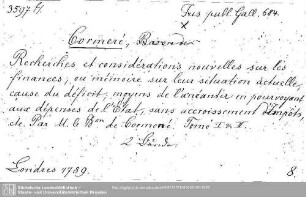 3597 fl
Jus publ. Gall. 684.
x
Cormeré, Baron de
Recherches et considérations nouvelles sur les
finances, ou mémoire sur leur situation actuelle,
cause du déficit, moyens de l'anéantir en pourvoyant
aux dépenses de l'État, sans accroissement d'Impôts,
etc. Par M. le Bon de Cormeré. Tome I & II.
2 Bände
Londres 1789.
8.
Sächsische Landesbibliothek -